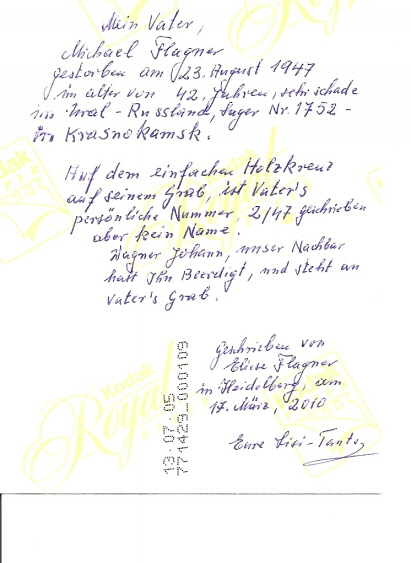 Mein Vater,
Michael Flagner
gestorben am 23. August 1947
im alter von 42, Jahren, sehr schade
im Ural - Russland, Lager Nr. 1752 -
in Krasnokamsk.
Auf dem einfachen Holzkreuz
auf seinem Grab, ist Vater's
persönliche Nummer, 2/47 geschrieben
aber kein Name.
Wagner Johann, unser Nachbar
hatt Ihn Beerdigt, und steht an
Vater's Grab.
Geschrieben von
Eliese Flagner
in Heidelberg, am
17. März, 2010
Eure Lisi-Tante
13·07·05
771429_000109
Kodak
Royal
Kodak